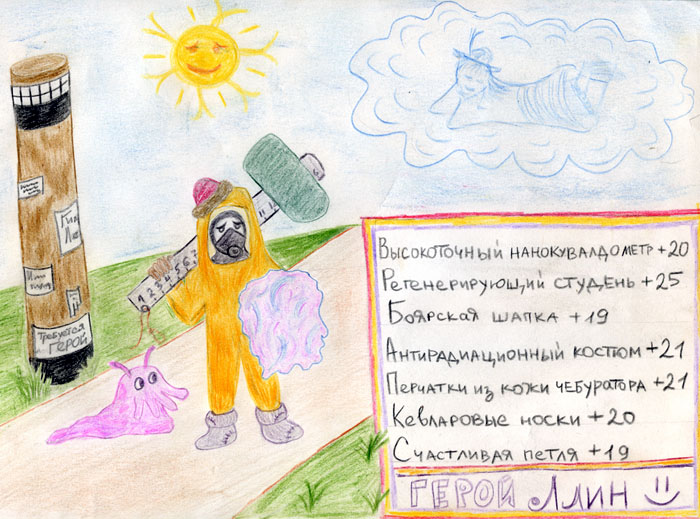 Требуется
ГЕРОЙ
1 2 3 4 5 6
Высокоточный нанокувалдометр +20
Регенерирующий студень +25
Боярская шапка +19
Антирадиационный костюм +21
Перчатки из кожи чебуратора +21
Кевларовые носки +20
Счастливая петля +19
ГЕРОЙ Ллин